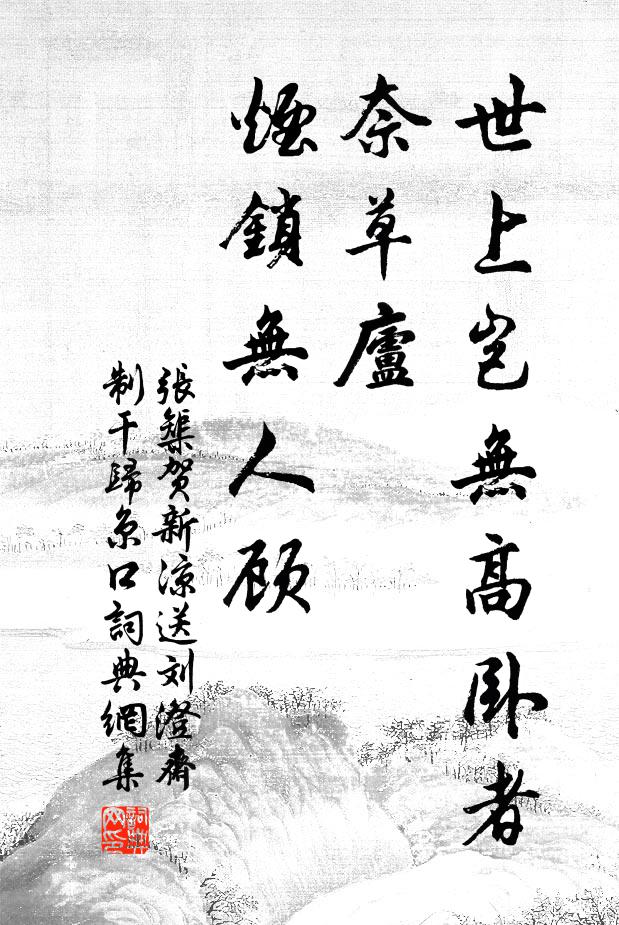 世上岂無高卧者
奈草廬
煙鎖無人顾
張榘贺新涼送刘澄齋
制干歸京口詞典網集